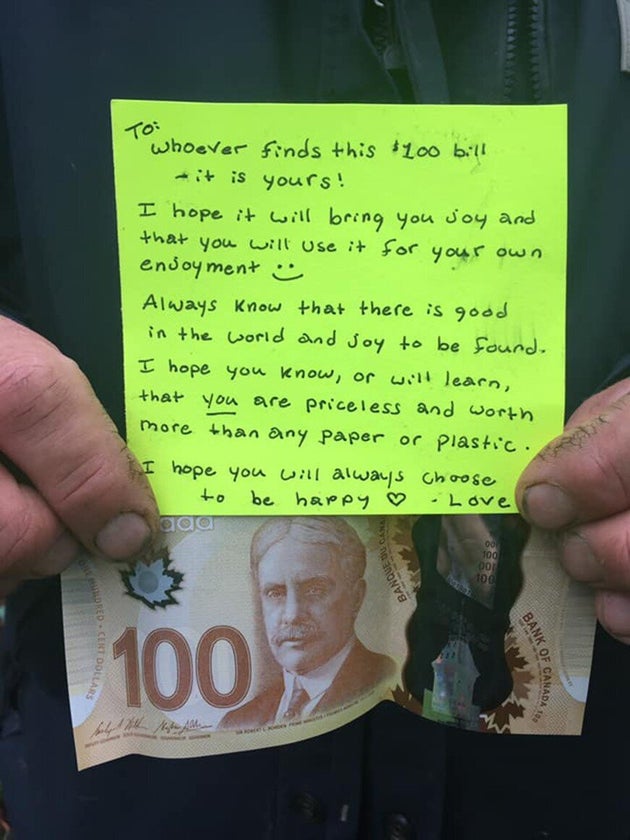 To:
Whoever finds this $100 bill
- it is yours!
I hope it will bring you joy and
that you will use it for your own
enjoyment :)
Always know that there is good
in the world and joy to be found.
I hope you know, or will learn,
that you are priceless and worth
more than any paper or plastic.
I hope you will always choose
to be happy ♡ - Love
100
BANQUE DU CANA
BANK OF CANADA
HUNDRED • CENT DOLLARS
SIR ROBERT L. BORDEN
100